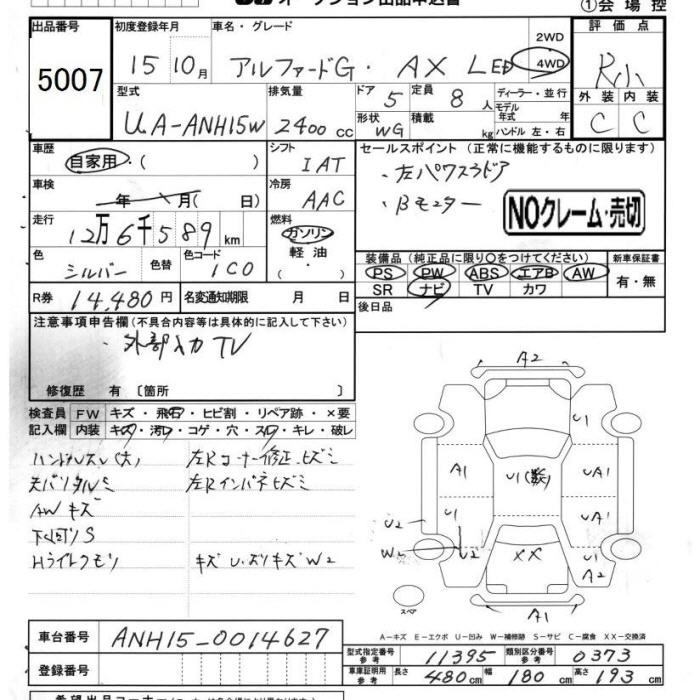 オークション出品申込書
①会場控
出品番号
5007
初度登録年月
15 10月
車名・グレード
アルファードG・ AX LED
2WD
4WD
評価点
R小
外装 内装
C C
型式
UA-ANH15W
排気量
2400 cc
ドア 5
形状 WG
定員 8 人
積載 kg
ディーラー・並行
モデル年式 年
ハンドル 左・右
車歴
自家用・( )
シフト
IAT
車検
年 月( 日)
冷房
AAC
走行
12万6千589 km
燃料
ガソリン
軽油
・( )
色
シルバー
色替
色コード
1C0
R券 14,480円
名変通知期限 月 日
セールスポイント (正常に機能するものに限ります)
・左パワスラドア
・Bモニター
NOクレーム・売切
装備品 (純正品に限り○をつけてください)
PS PW ABS エアB AW
SR ナビ TV カワ
新車保証書
有・無
後日品
注意事項申告欄 (不具合内容等は具体的に記入して下さい)
・外部入力TV
修復歴 有 〔箇所 〕
検査員 FW キズ・飛石・ヒビ割・リペア跡・×要
記入欄 内装 キズ・汚レ・コゲ・穴・スレ・キレ・破レ
ハンドルスレ(大) 左Rコーナー修正ヒズミ
天バリタルミ 左Rインパネヒズミ
AWキズ
下回リS
Hライトクモリ キズ U.ズリキズ W2
A2
U1
A1
U1
UA1
U1
UA1
U2
W
U2
XX
U1
A2
A1
スペア
A-キズ E-エクボ U-凹み W-補修跡 S-サビ C-腐食 XX-交換済
車台番号 ANH15-0014627
登録番号
型式指定番号 参考 11395 類別区分番号 参考 0373
車庫証明用 参考 長さ 480cm 幅 180cm 高さ 193cm